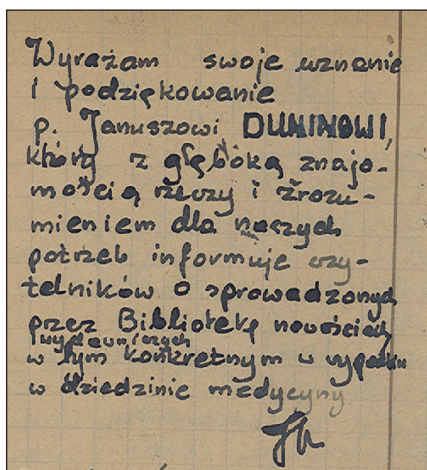 Wyrażam swoje uznanie
i podziękowanie
p. Januszowi DUNINOWI,
który z głęboką znajo-
mością rzeczy i zrozu-
mieniem dla naszych
potrzeb informuje czy-
telników o sprowadzonych
przez Bibliotekę nowościach
wydawniczych
w tym konkretnym w wypadku
w dziedzinie medycyny